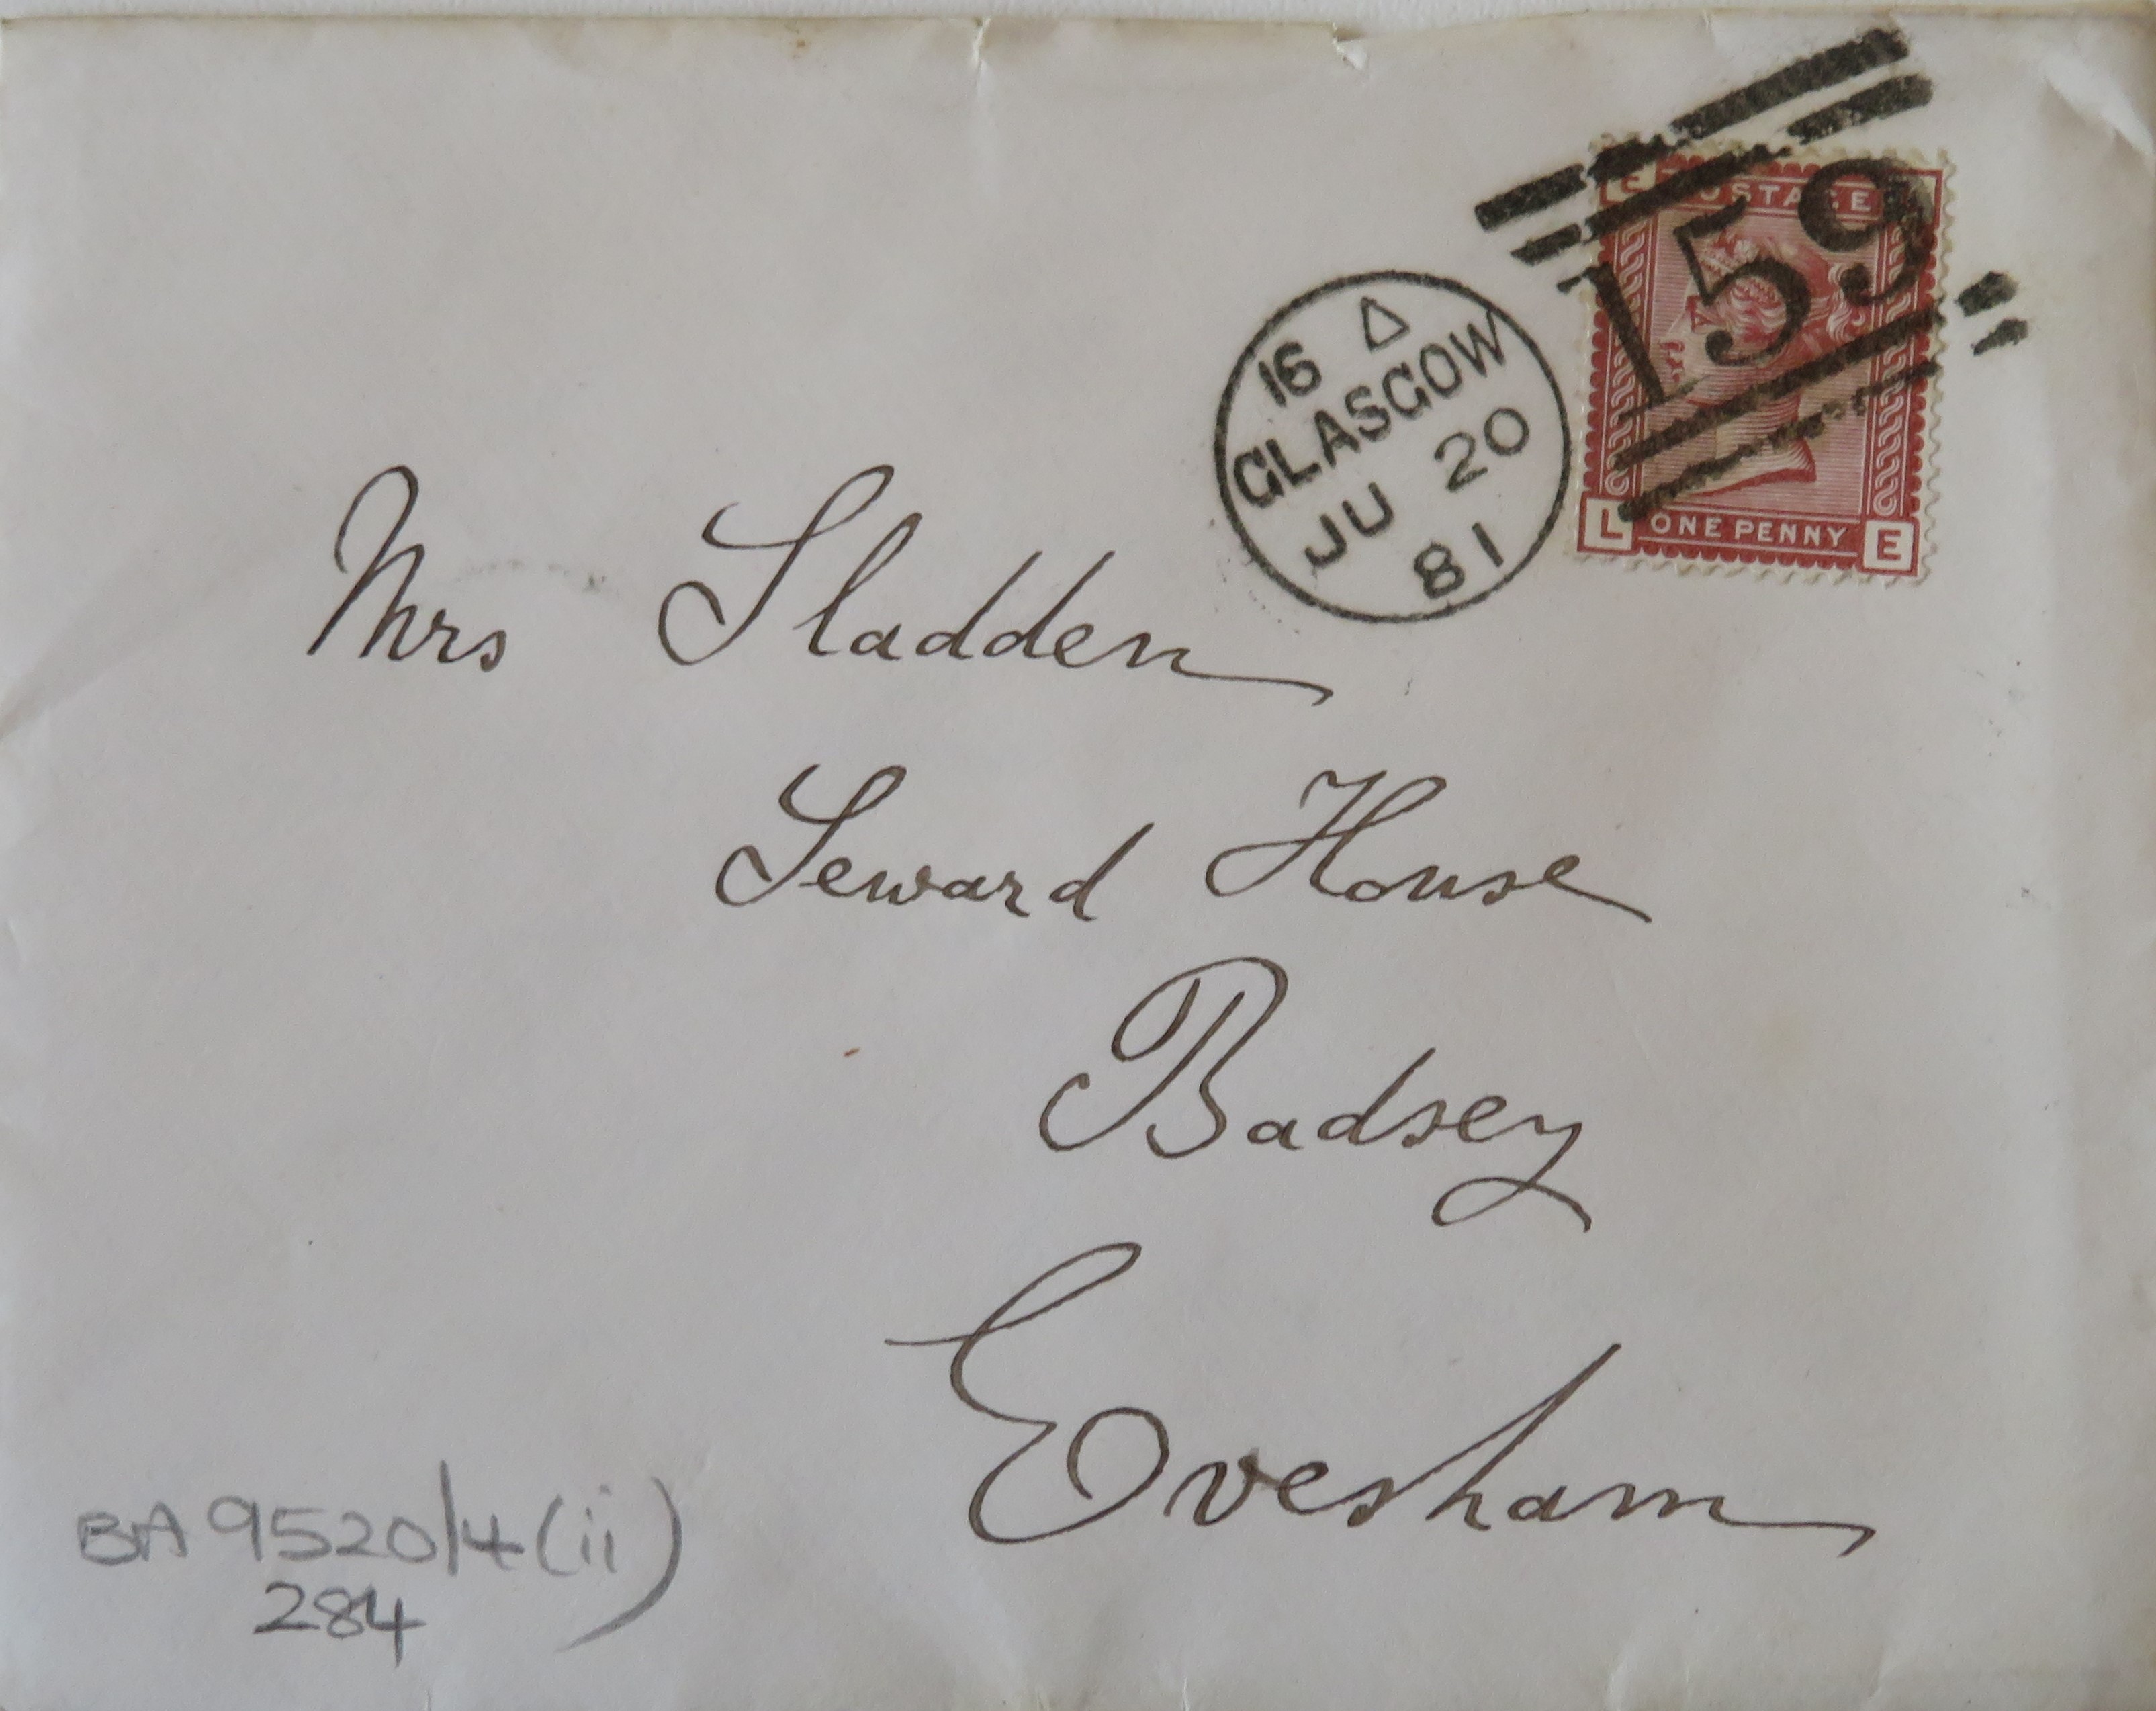 159
E POSTAGE
16 Δ
GLASGOW
JU 20
81
L ONE PENNY E
Mrs Sladden
Seward House
Badsey
Evesham
BA 9520/4(ii)
284